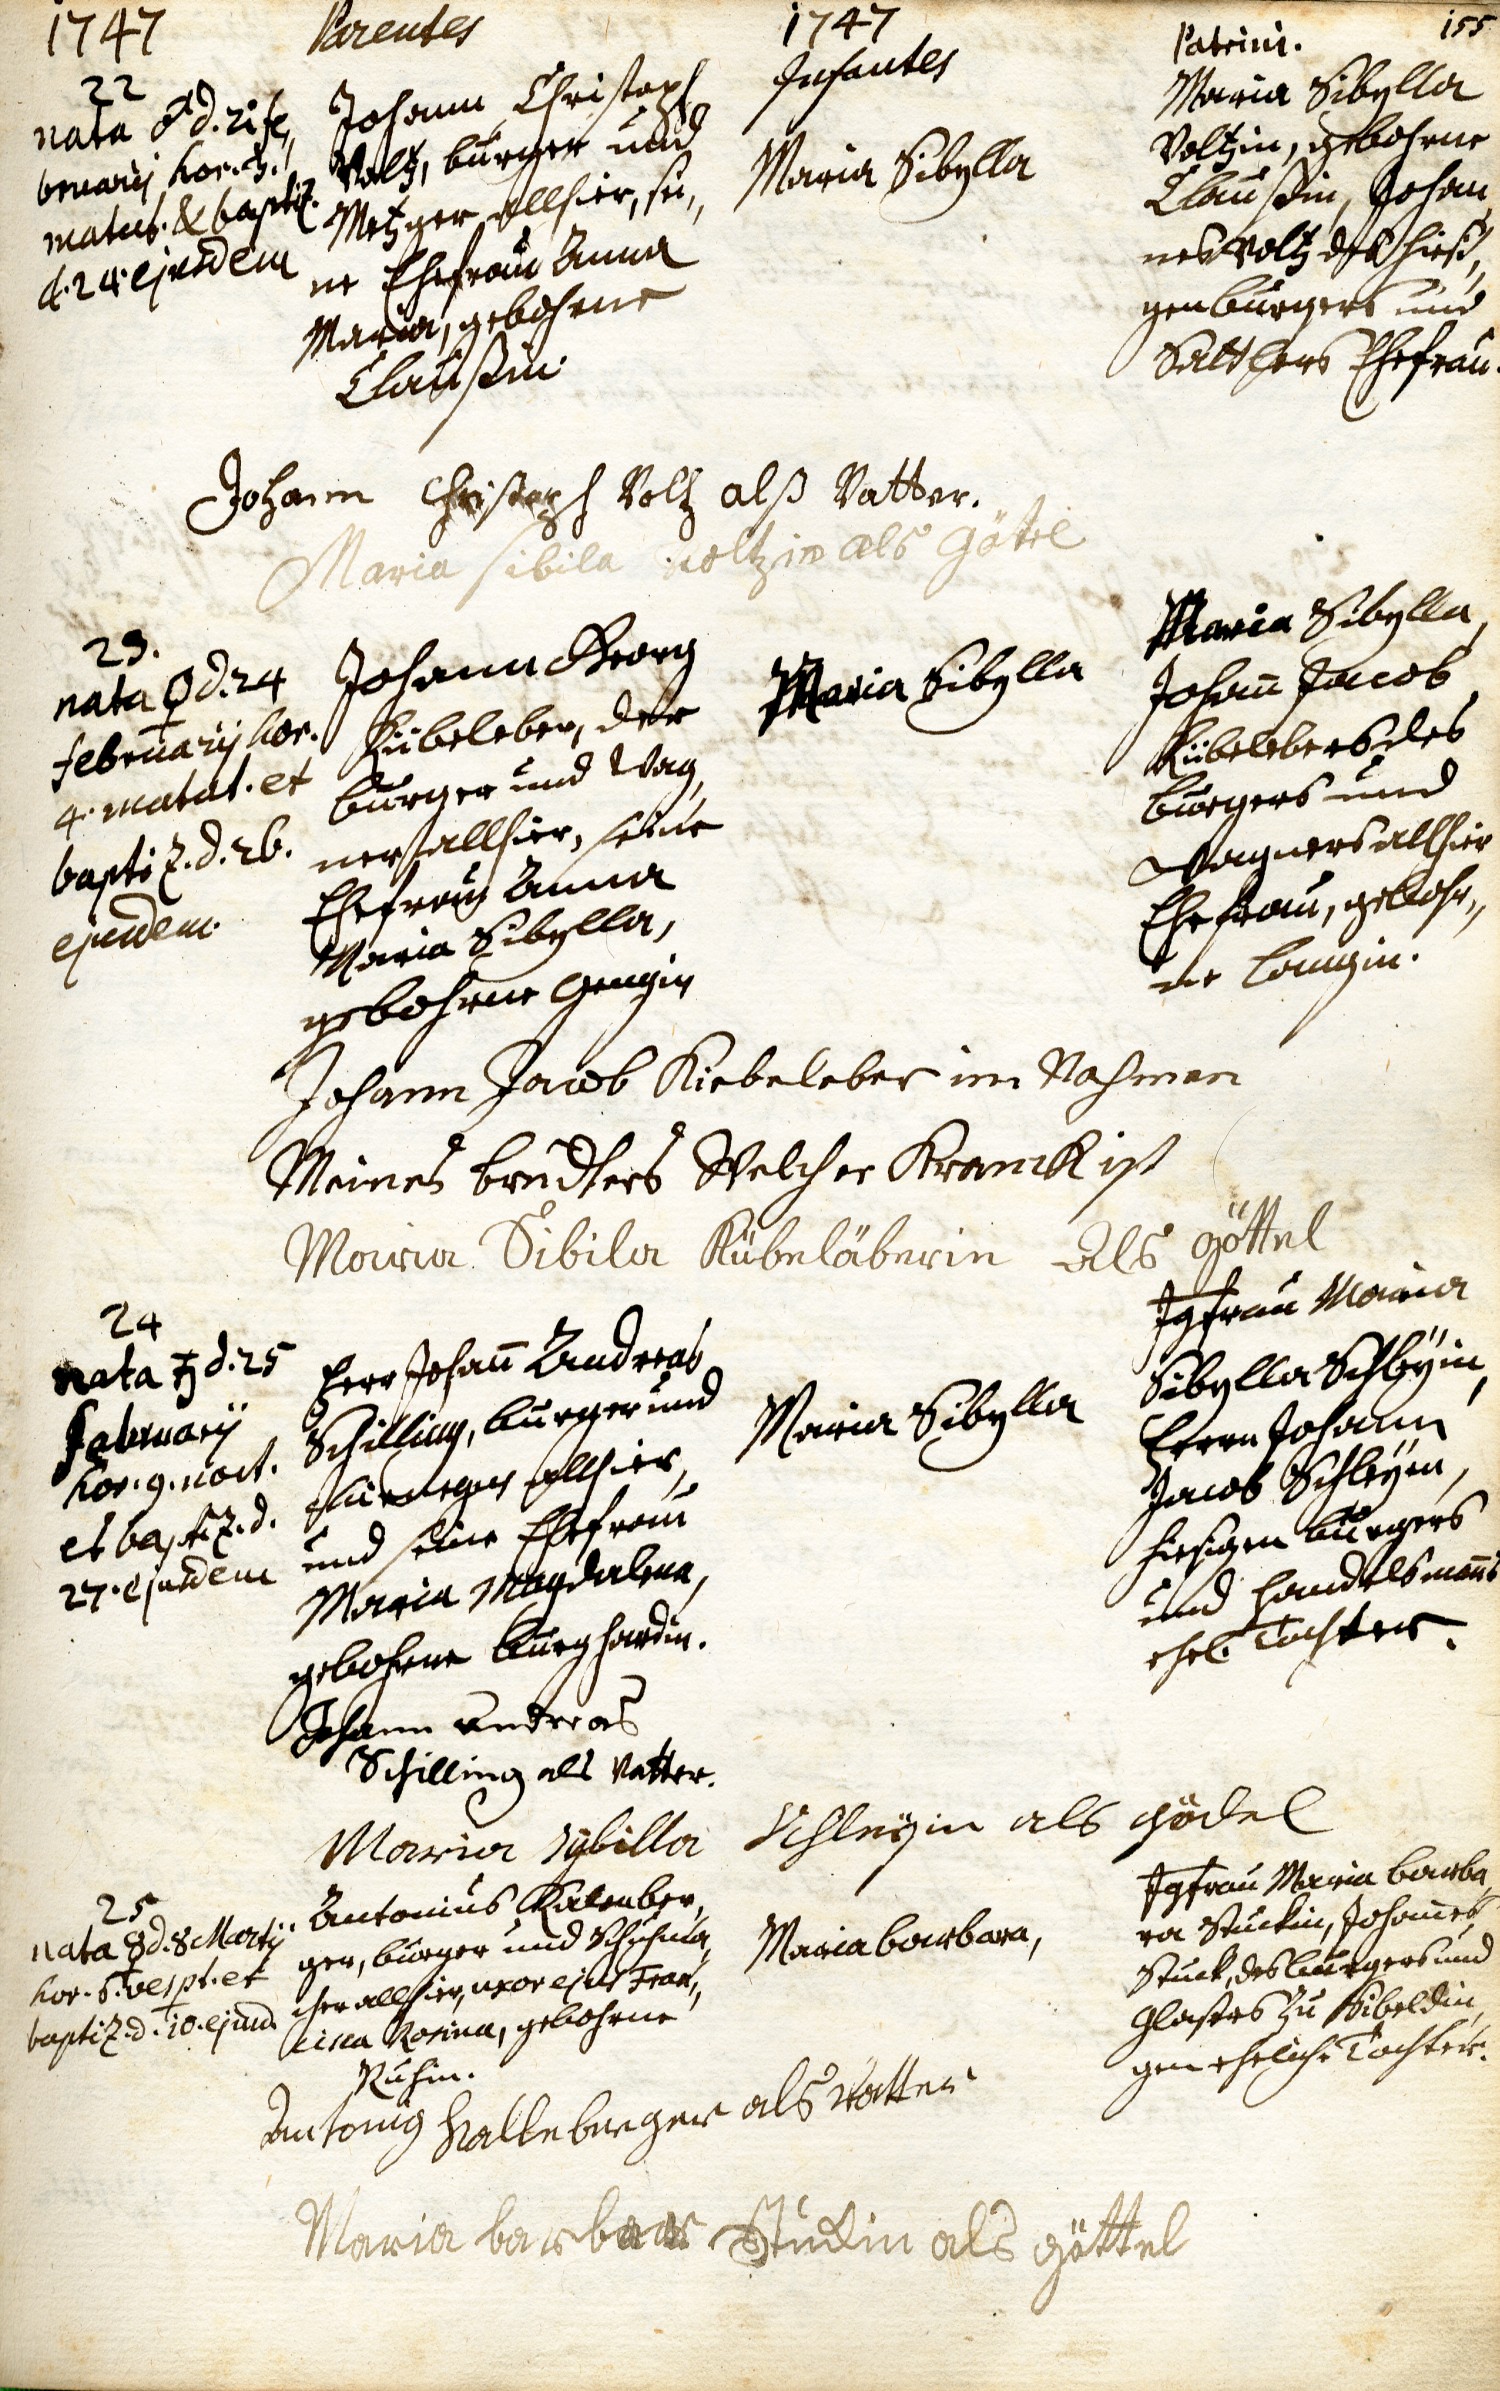 1747 Parentes 1747 Patrini. 155
Infantes
22
nata ♂ d. 21 fe,
bruarij hor. 3.
matut. & baptiz.
d. 24. ejusdem
Johann Christoph
Voltz, burger und
Metzger allhier, sei,,
ne Ehefrau Anna
Maria, gebohrne
Claußin.
Maria Sibylla
Maria Sibylla
Voltzin, gebohrne
Claußin, Johan,
nes Voltz des hiesi,
gen burgers und
Sattlers Ehefrau.
Johann Christoph Voltz alß Vatter.
Maria sibila voltzin als götel
23.
nata ♀ d. 24
februarij hor.
4. matut. et
baptiz. d. 26.
ejusdem.
Johann Georg
Kübeleber, der
burger und Wag,
ner allhier, seine
Ehefrau Anna
Maria Sibylla,
gebohrne
Maria Sibylla
Maria Sibylla,
Johann Jacob
Kübelebers des
burgers und
Wagners allhier
Ehefrau, gebohr,,
ne
Johann Jacob Kiebeleber im Nahmen
Meines brudters Welcher Kranck ist
Maria Sibila Kübeläberin als göttel
24
nata ♄ d. 25
februarij
hor. 9. noct.
et baptiz. d.
27. ejusdem
Herr Johann Andreas
Schilling, burger und
allhier,
und seine Ehefrau
Maria Magdalena,
gebohrne Burghardin.
Maria Sibylla
Jgfrau Maria
Sibylla Schleÿin,
Herrn Johann
Jacob Schleÿen,
hiesigen burgers
und handelsmanns
ehel. Tochter.
Johann andreas
Schilling als Vatter.
Maria Sybilla Schleÿin als gödel
25
nata ☿ d. 8 Martij
hor. 6. vespt. et
baptiz. d. 10. ejusd.
Antonius Kalenber,
ger, burger und Schuhma,
cher allhier, uxor ejus Fran,,
cisca Rosina, gebohrne
Ruhin.
Maria barbara,
Jgfrau Maria barba,
ra Stuckin, Johannes
Stuck, des burgers und
Glasers zu
gen eheliche Tochter.
Antonig Kalleberger als vatter
Maria barbara Stuckin als göttel